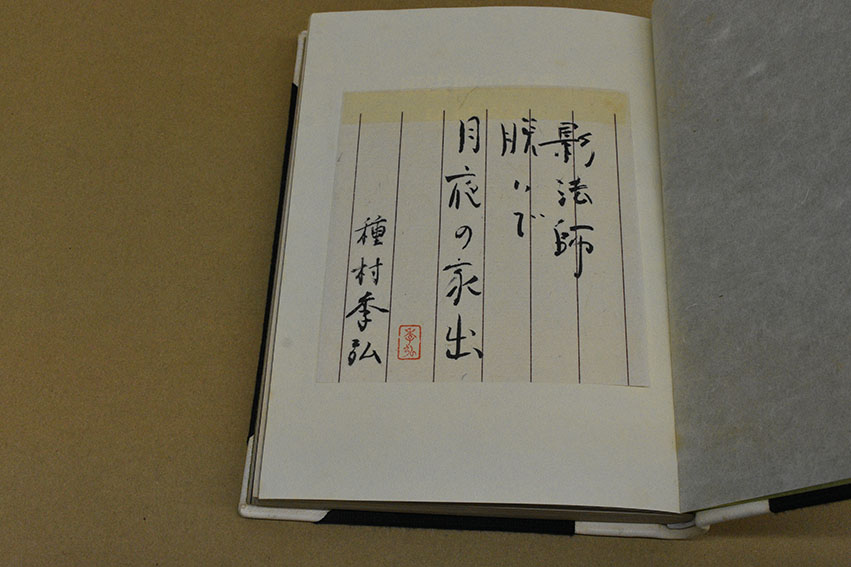 影法師
脱いで
月夜の家出
種村季弘
季弘